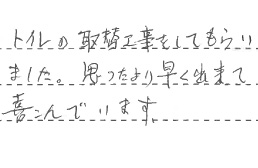 トイレの取替工事をしてもらい
ました。思ったより早く出来て
喜こんでいます。